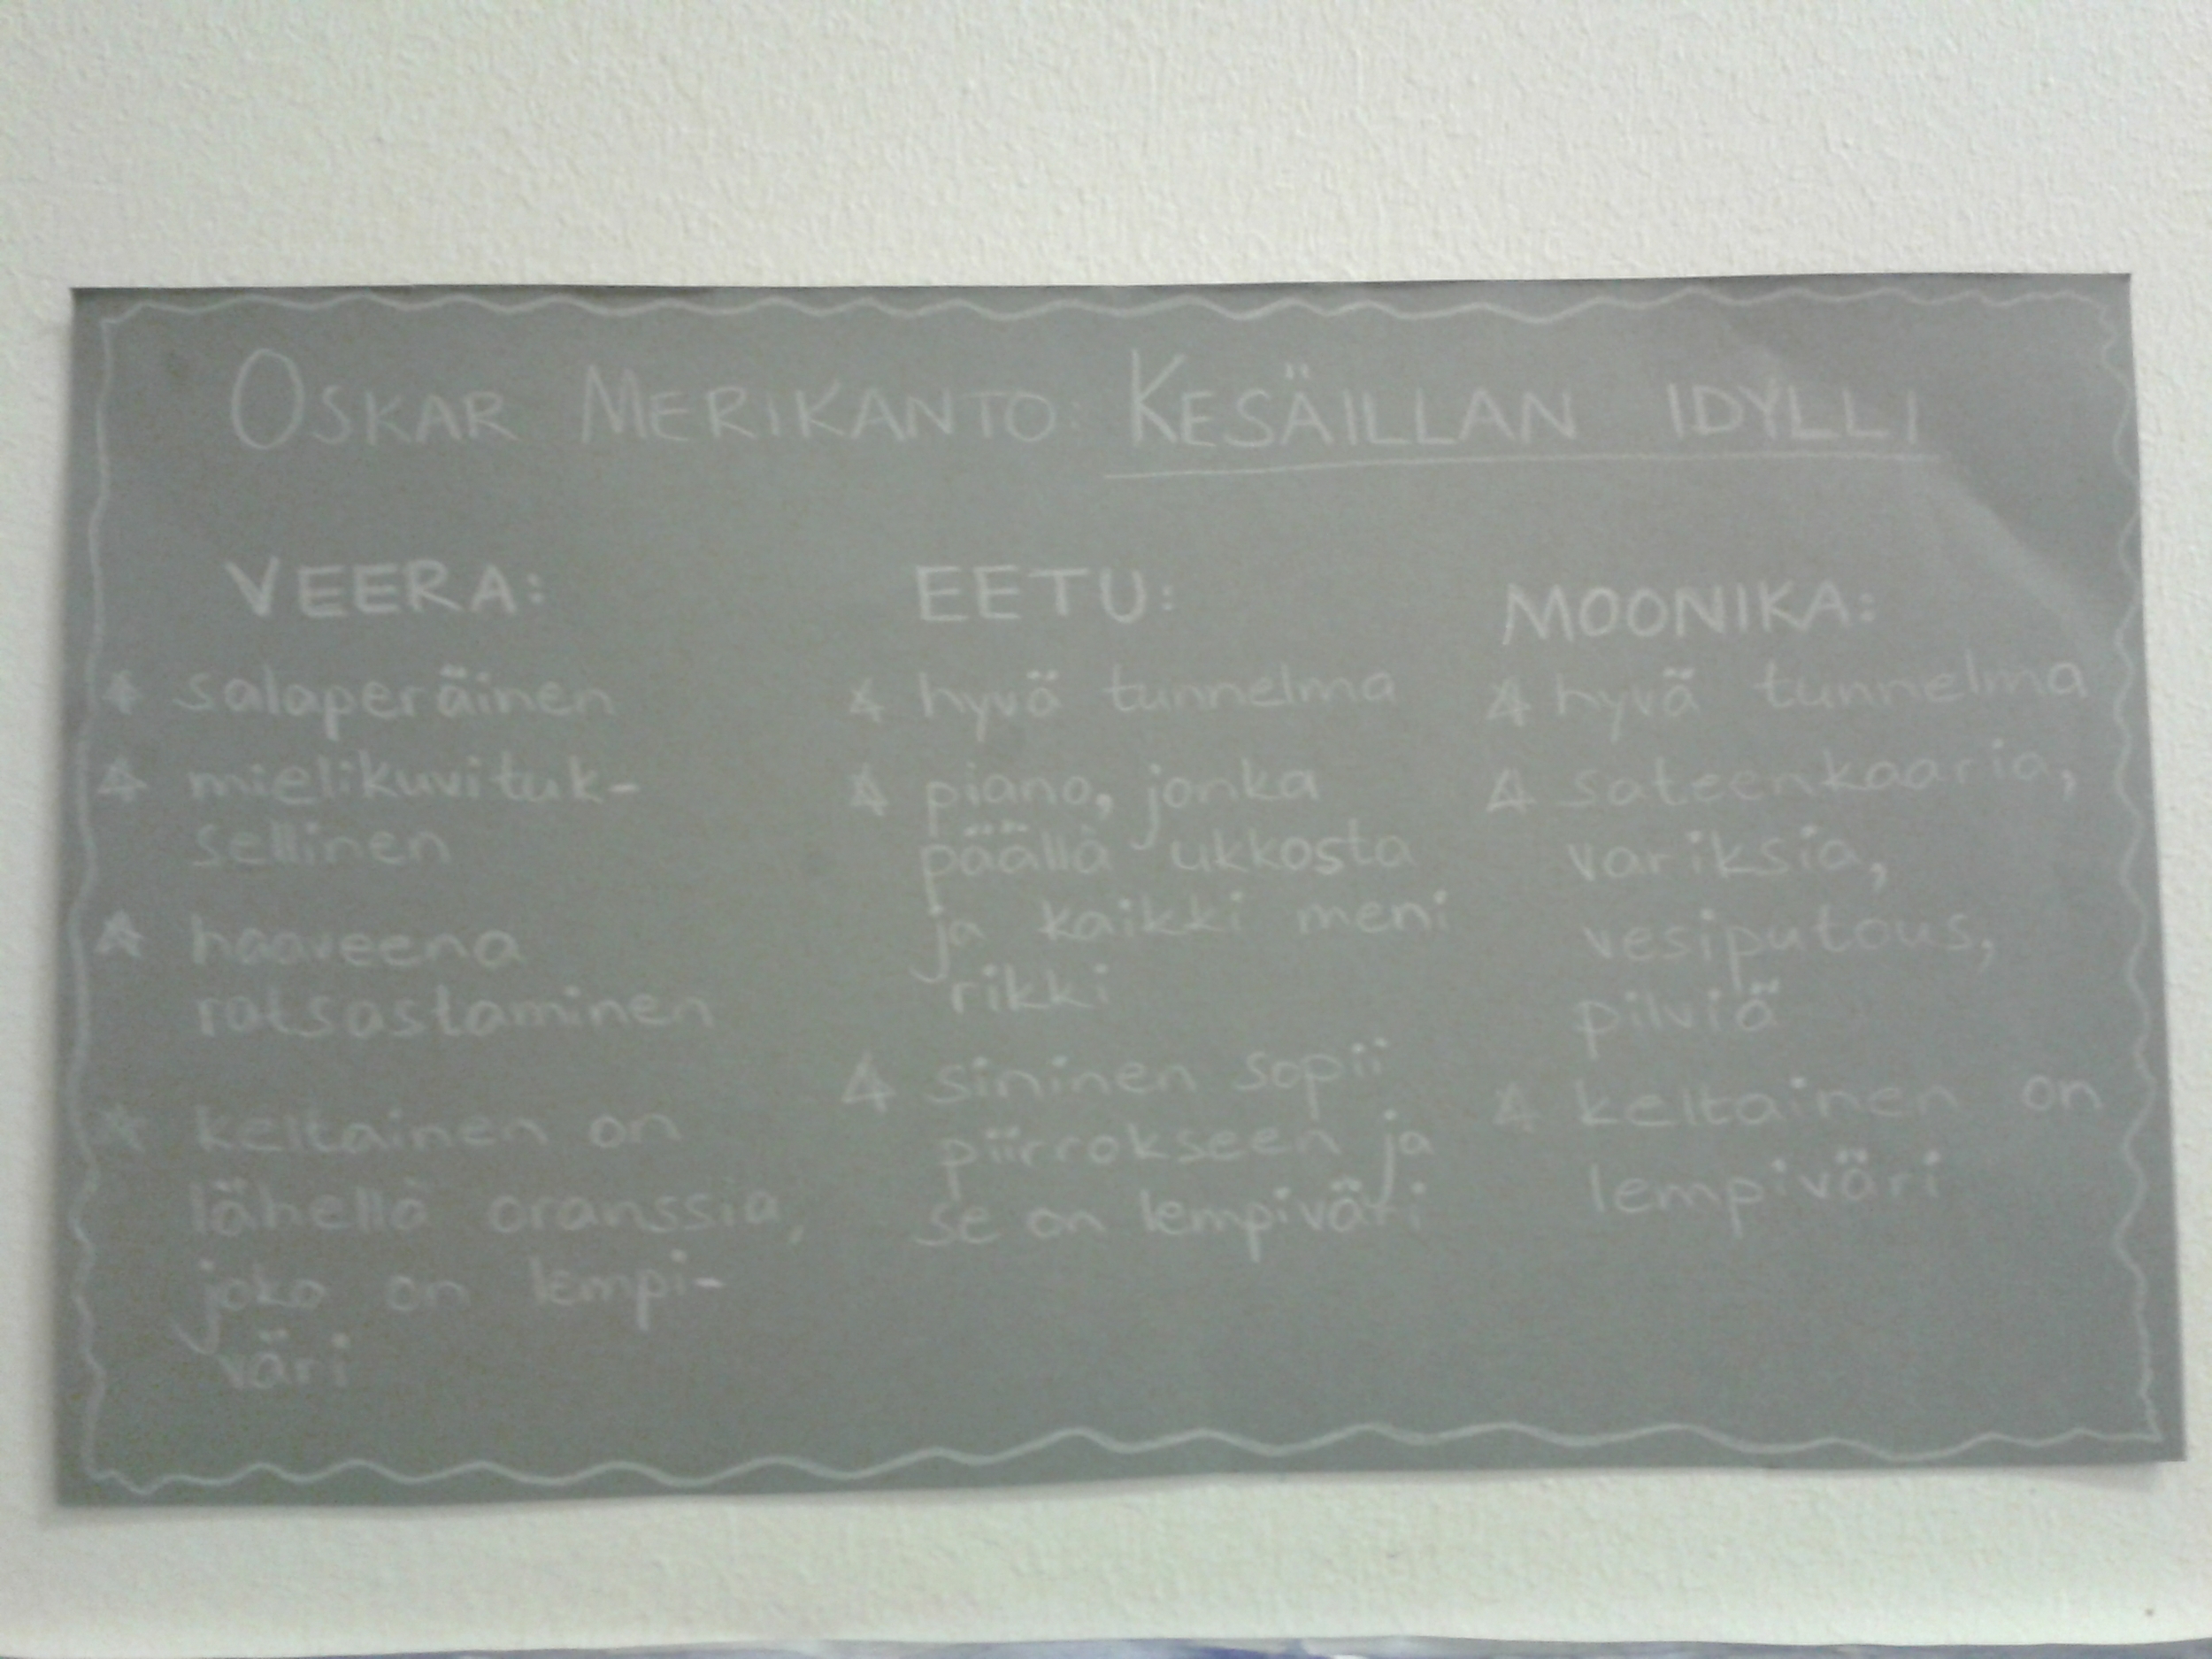 OSKAR MERIKANTO: KESÄILLAN IDYLLI
VEERA:
salaperäinen
mielikuvituk-
sellinen
haaveena
ratsastaminen
keltainen on
lähellä oranssia,
joka on lempi-
väri
EETU:
hyvä tunnelma
piano, jonka
päällä ukkosta
ja kaikki meni
rikki
sininen sopii
piirrokseen ja
se on lempiväri
MOONIKA:
hyvä tunnelma
sateenkaaria,
variksia,
vesiputous,
pilviä
keltainen on
lempiväri